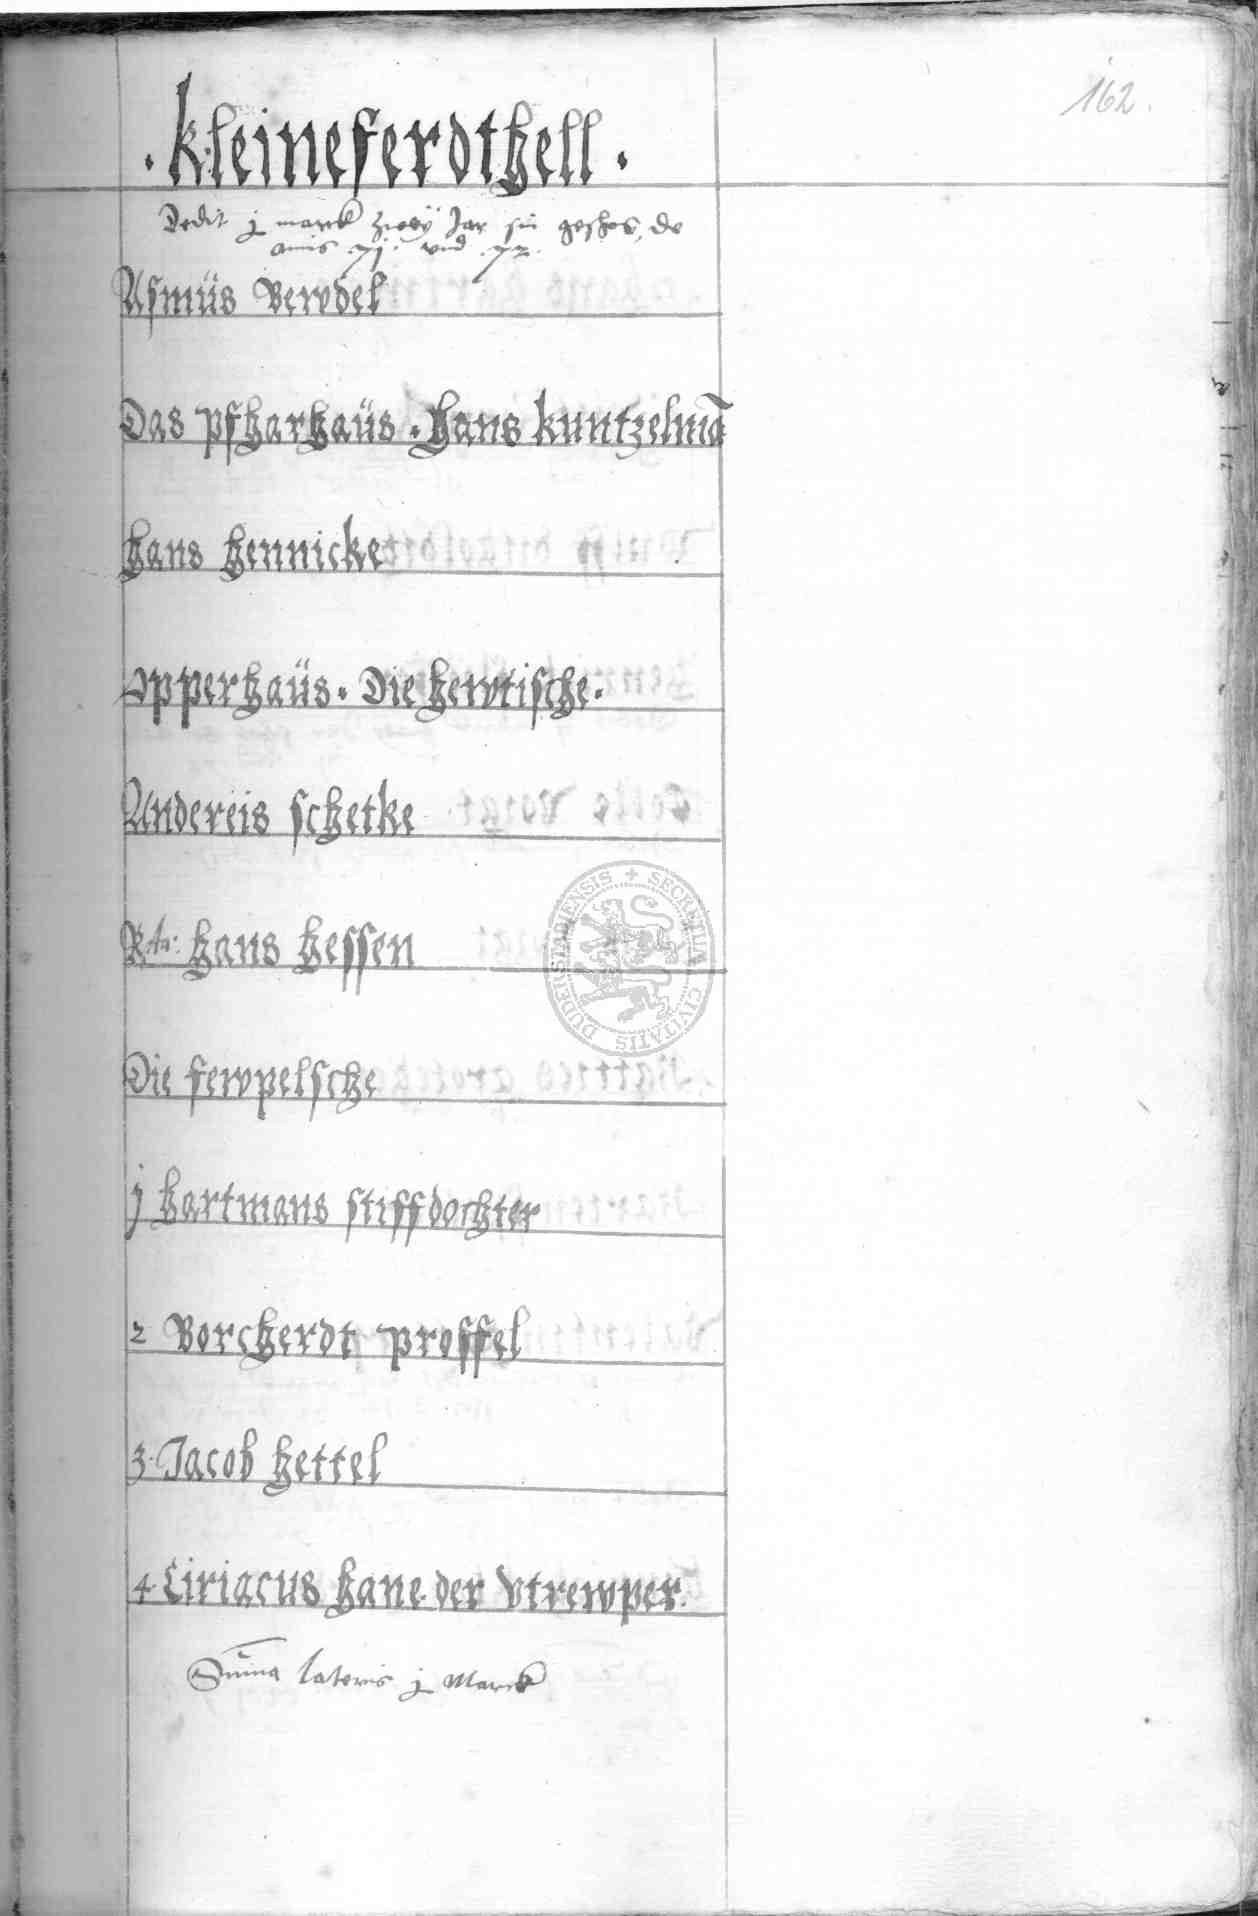 162.
. kleineferdthell .
Dedit j marck zwey Jar sin geschos, de
anis 71. vnd 72.
Asmüs Bewdel
Das pfharhaüs . hans kuntzelmā
hans hennicke
opperhaüs . Die hewtische .
Andereis schetke
hans hessen
Die fewpelsche
j hartmans stiffdochter
2 Borcherdt proffel
3 . Jacob hettel
4 . Ciriacus hane . der vtrewper .
Suma lateris j Marck
SECRETUM CIVITATIS DUDERSTADIENSIS